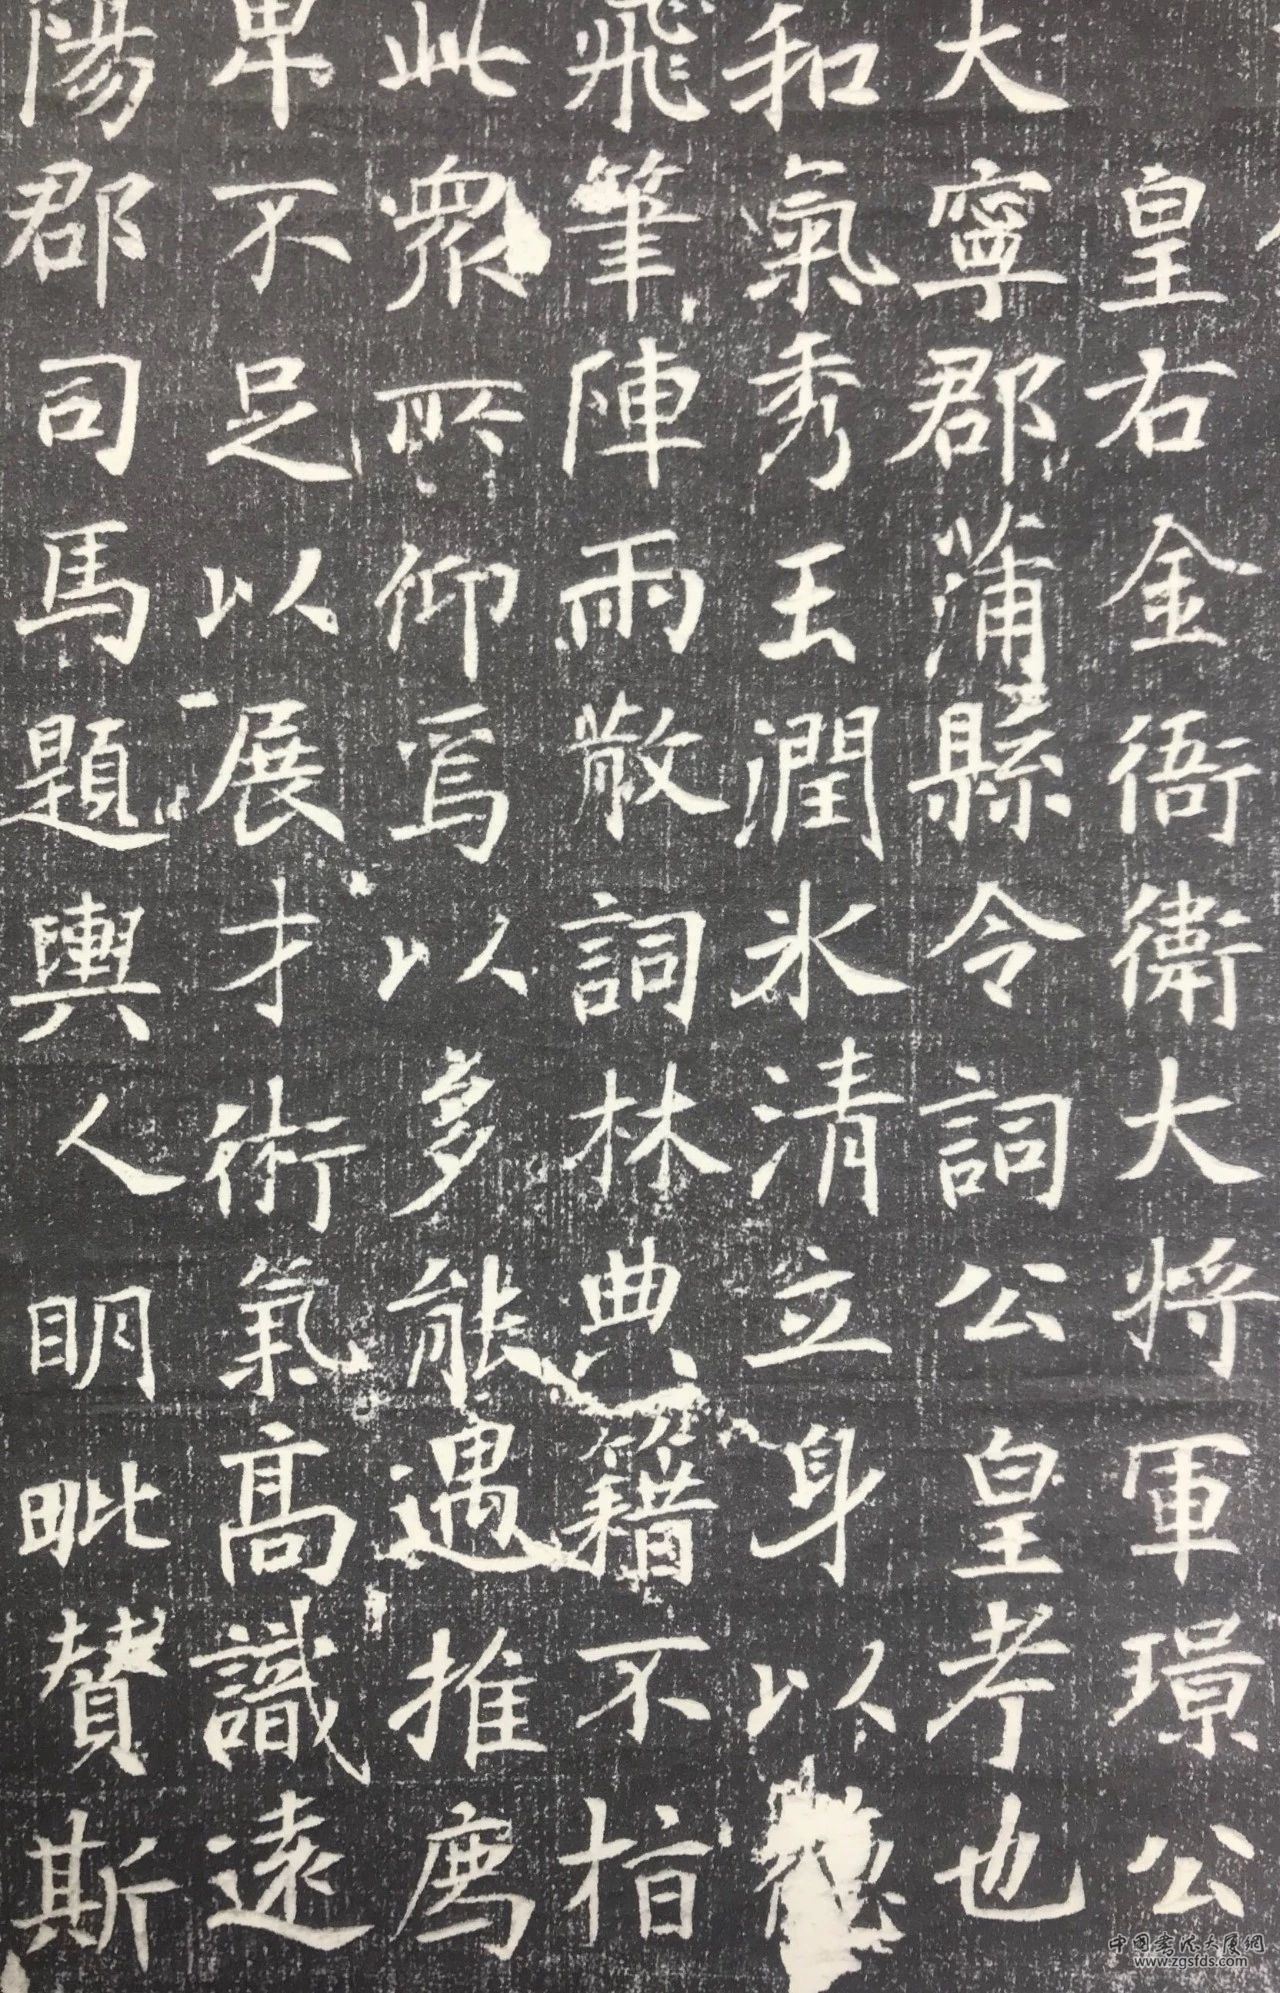 皇右金衙衛大將軍璟公
大寧郡蒲縣令詞公皇考也
和氣秀玉潤氷清立身以德
飛筆陣雨散詞林典籍不指
此衆所仰焉以多能遇推
卑不足以展才術氣高識遠
陽郡司馬題輿人眀毗贊斯
www.zgsfds.com